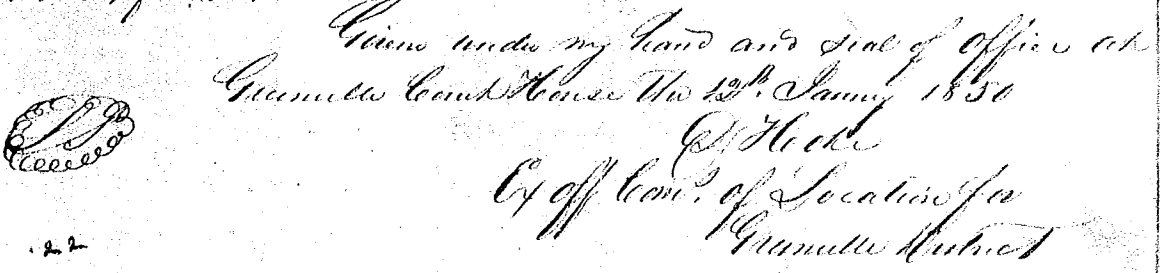 Given under my hand and seal of office at
Greenville Court House this 12th. Januy 1850
D Hoke
Ex off Com.r of Location for
Greenville District
22